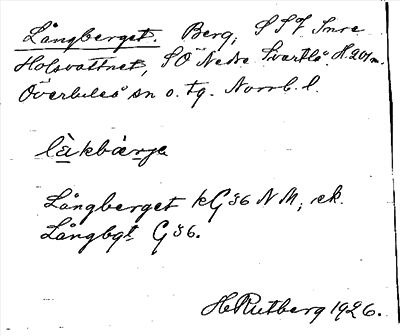 Långberget. Berg, SSV Inre
Holsvattnet, SO Nedre Svartlå. H. 201 m.
Överluleå sn o. tg. Norrb. l.
làkbàrja
Långberget kG 36 NM; ek.
Långbgt G 36.
H Rutberg 1926.